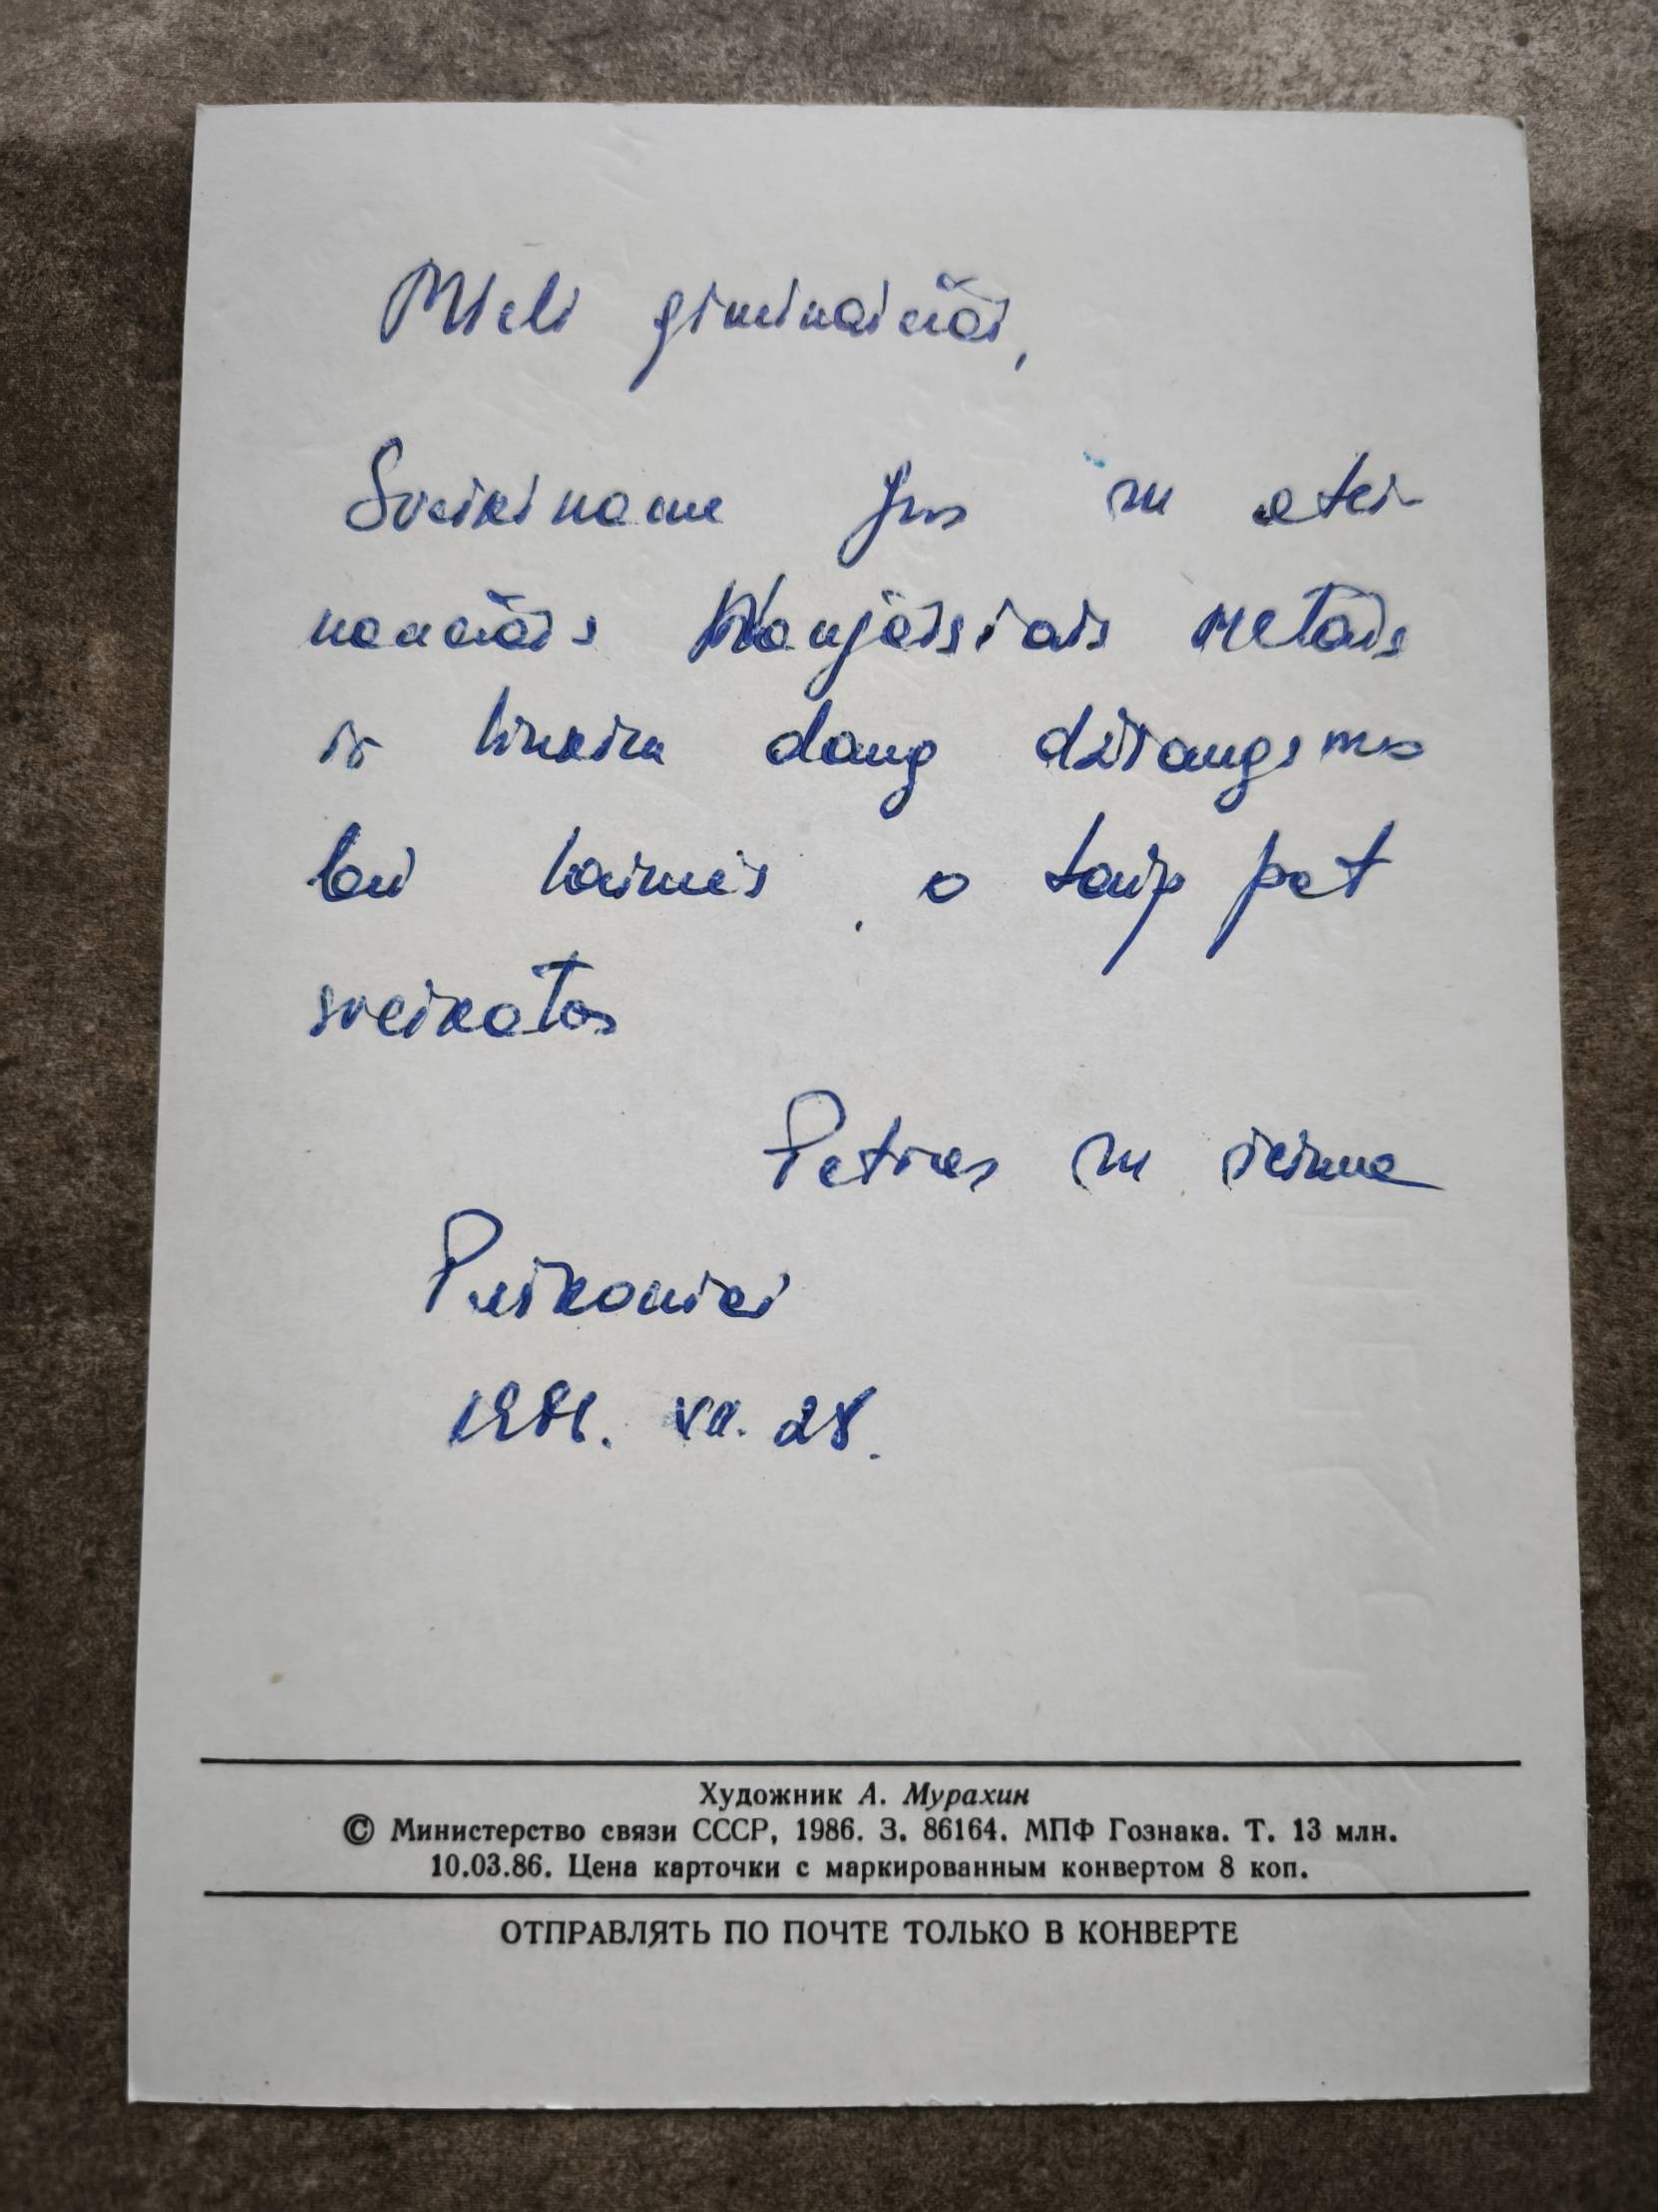 Mieli giminaičiai,
Sveikiname Jus su atei-
nančiais Naujaisiais Metais
ir linkim daug džiaugsmo
bei laimės, o taip pat
sveikatos
Petras su šeima
Puškoniai
1986. XII. 28.
Художник А. Мурахин
© Министерство связи СССР, 1986. З. 86164. МПФ Гознака. Т. 13 млн.
10.03.86. Цена карточки с маркированным конвертом 8 коп.
ОТПРАВЛЯТЬ ПО ПОЧТЕ ТОЛЬКО В КОНВЕРТЕ